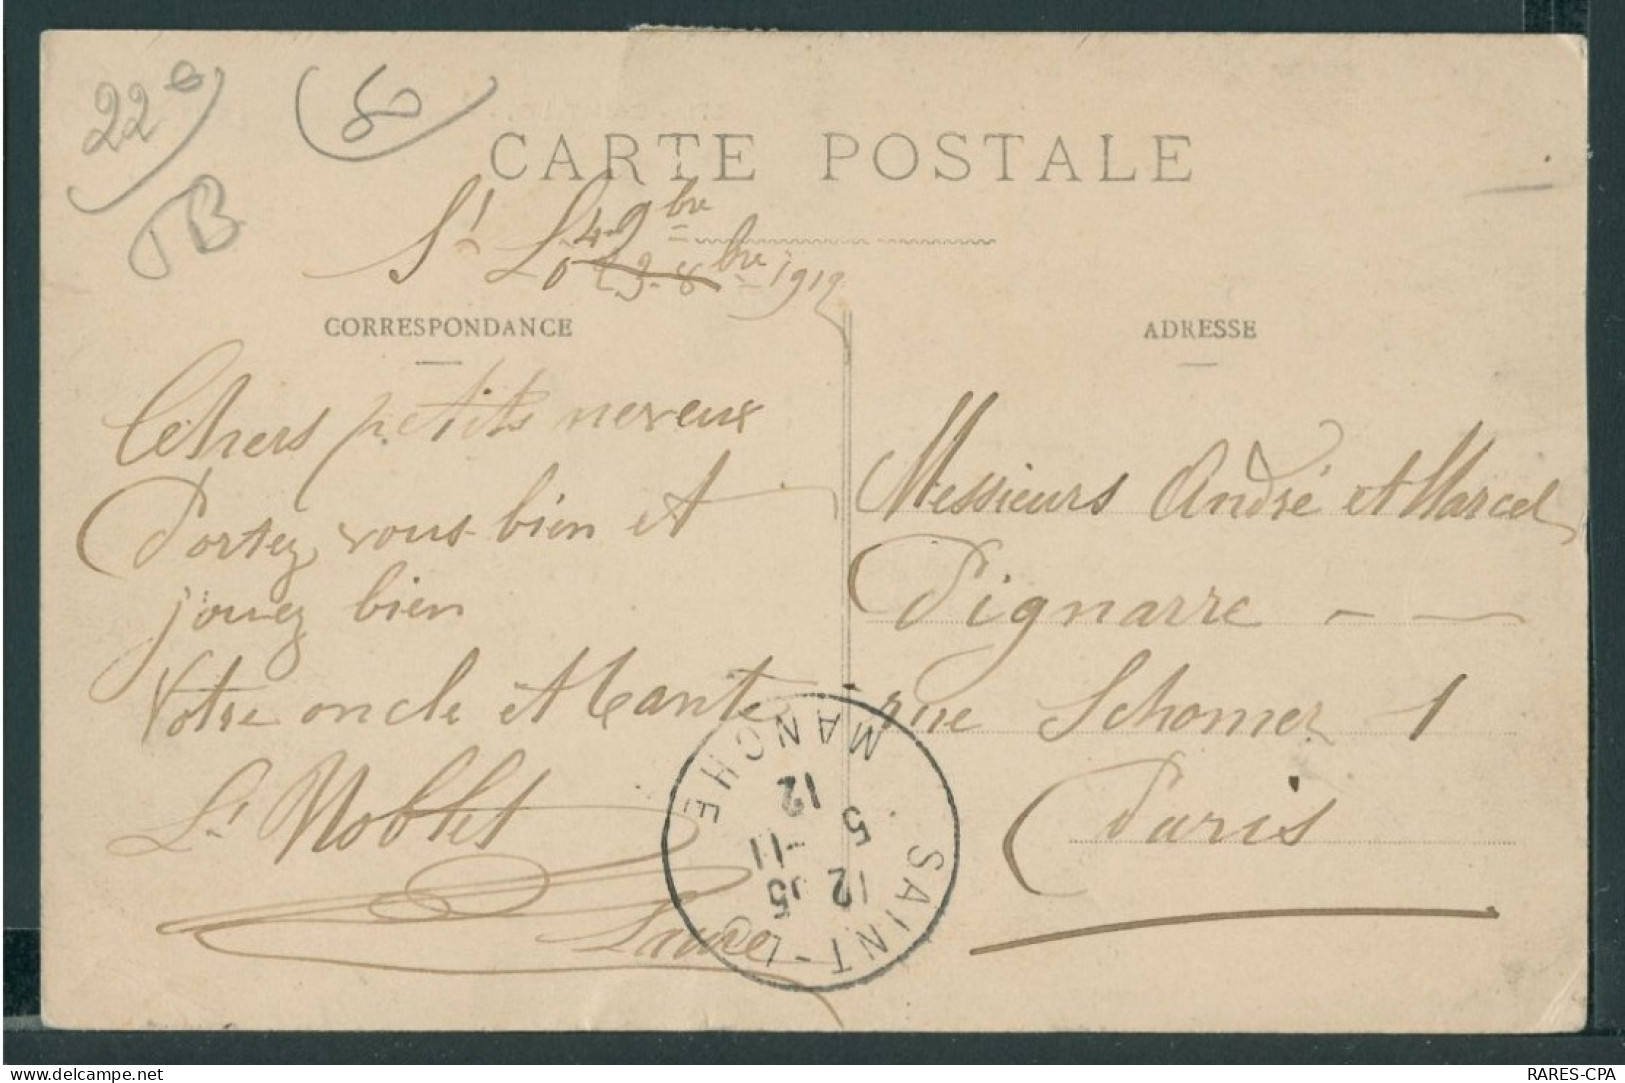 22e
50
TB
CARTE POSTALE
St Lô 4 9bre
3 8bre 1912
CORRESPONDANCE
ADRESSE
Cchers petits neveux
Portez vous bien et
jouez bien
Votre oncle et tante
Lt Noblet
Laure
Messieurs André et Marcel
Pignarre
rue Schomer 1
Paris
SAINT-LO
MANCHE
12 05
5 -11
12
RARES-CPA